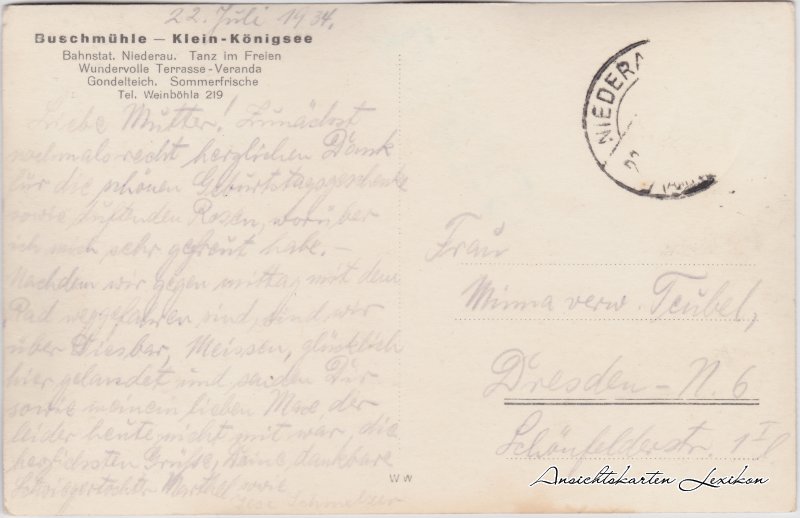 22. Juli 1934.
Buschmühle — Klein-Königsee
Bahnstat. Niederau. Tanz im Freien
Wundervolle Terrasse-Veranda
Gondelteich. Sommerfrische
Tel. Weinböhla 219
Liebe Mutter! Zunächst
nochmals recht herzlichen Dank
für die schönen Geburtstagsgeschenke
sowie duftenden Rosen, worüber
ich mich sehr gefreut habe. –
Nachdem wir gegen mittag mit dem
Rad weggefahren sind, sind wir
über Diesbar, Meissen, glücklich
hier gelandet und senden Dir
sowie meinem lieben Max der
leider heute nicht mit war, die
herzlichsten Grüße, Deine dankbare
Schwiegertochter Marthel sowie
Schmelzer
NIEDERA
Frau
Minna verw. Teubel,
Dresden - N. 6
Schönfelderstr. 1 I
W W
Ansichtskarten Lexikon